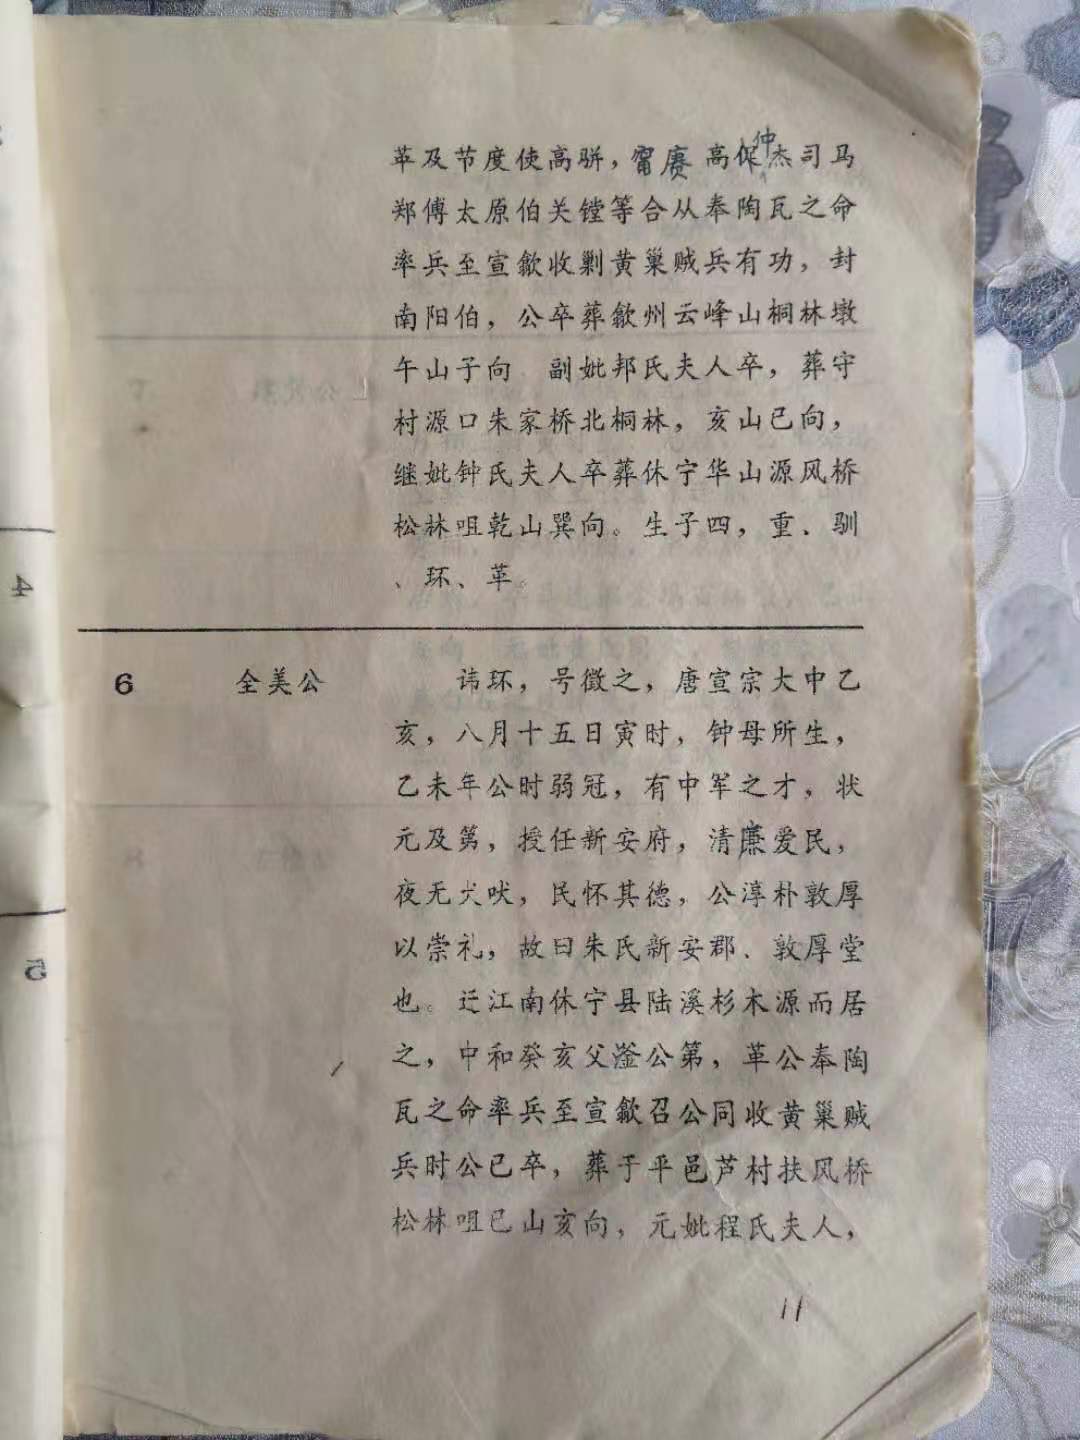 革及节度使高骈，甯赛 高保仲杰司马
郑傅太原伯关镗等合从奉陶瓦之命
率兵至宣歙收剿黄巢贼兵有功，封
南阳伯，公卒葬歙州云峰山桐林墩
午山子向 副妣邦氏夫人卒，葬守
村源口朱家桥北桐林，亥山巳向，
继妣钟氏夫人卒葬休宁华山源风桥
松林咀乾山巽向。生子四，重、驯
、环、革。
6 全美公 讳环，号徵之，唐宣宗大中乙
亥，八月十五日寅时，钟母所生，
乙未年公时弱冠，有中军之才，状
元及第，授任新安府，清廉爱民，
夜无犬吠，民怀其德，公淳朴敦厚
以崇礼，故曰朱氏新安郡、敦厚堂
也。迁江南休宁县陆溪杉木源而居
之，中和癸亥父滏公第，革公奉陶
瓦之命率兵至宣歙召公同收黄巢贼
兵时公已卒，葬于平邑芦村扶风桥
松林咀巳山亥向，元妣程氏夫人，
11
4
5